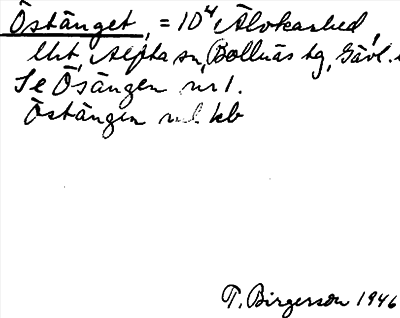 Östänget, = 10⁴ Älvkarhed,
Utt, Alfta sn, Bollnäs tg, Gävl.
Se Ösängen nr 1.
Östängen kb
T. Birgersson 1946